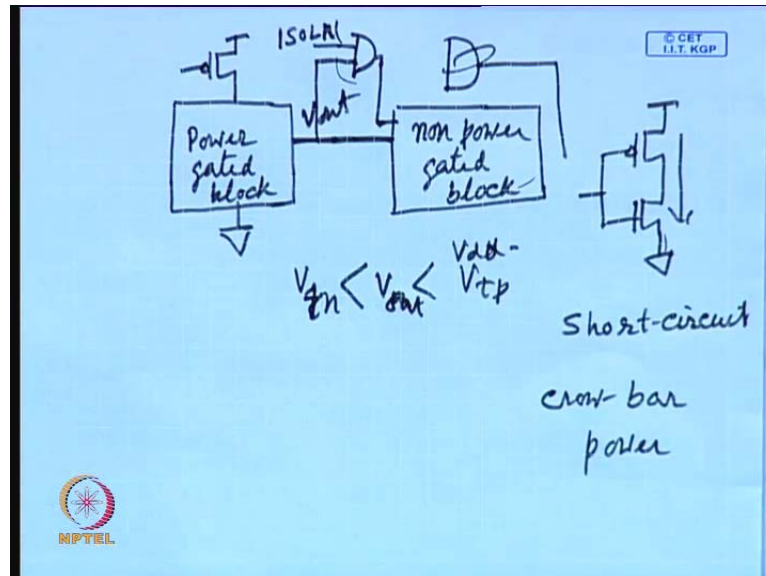 © CET
I.I.T. KGP
Vout
Power
gated
block
non power
gated
block
Vdd-
Vtn < Vout < Vtp
Short-circuit
crow-bar
power
NPTEL